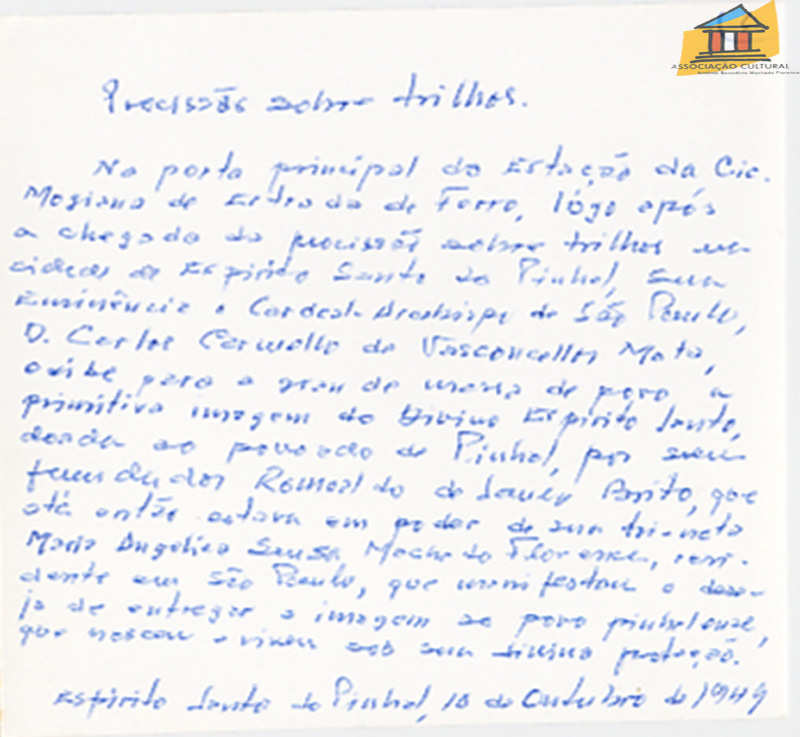 ASSOCIAÇÃO CULTURAL
Antonio Benedicto Machado Florence
Procissão sobre trilhos.
Na porta principal da Estação da Cia.
Mogiana de Estrada de Ferro, lógo após
a chegada da procissão sobre trilhos na
cidade de Espirito Santo do Pinhal, sua
Eminência o Cardeal-Arcebispo de São Paulo,
D. Carlos Carmello de Vasconcellos Mota,
exibe para a grande massa de povo a
primitiva imagem do Divino Espírito Santo,
doada ao povoado de Pinhal, por seu
fundador Romualdo de Souza Brito, que
até então estava em poder de sua tri-neta
Maria Angelica Sousa Machado Florence, resi-
dente em São Paulo, que manifestou o dese-
jo de entregar a imagem ao povo pinhalense,
que nasceu e viveu sob sua divina proteção.
Espirito Santo do Pinhal, 10 de Outubro de 1949